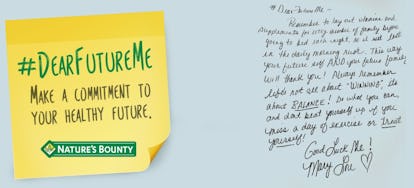 #DEARFUTUREME
MAKE A COMMITMENT
TO YOUR HEALTHY FUTURE.
NATURE'S BOUNTY
#DearFutureMe -
Remember to lay out vitamins and
supplements for every member of family before
going to bed each night, so it's not lost
in the daily morning rush. This way
your future self AND your future family
will thank you! Always remember
life's not all about "WINNING", it's
about BALANCE! Do what you can,
and don't beat yourself up if you
miss a day of exercise or treat
yourself!
Good Luck Me!
Mary